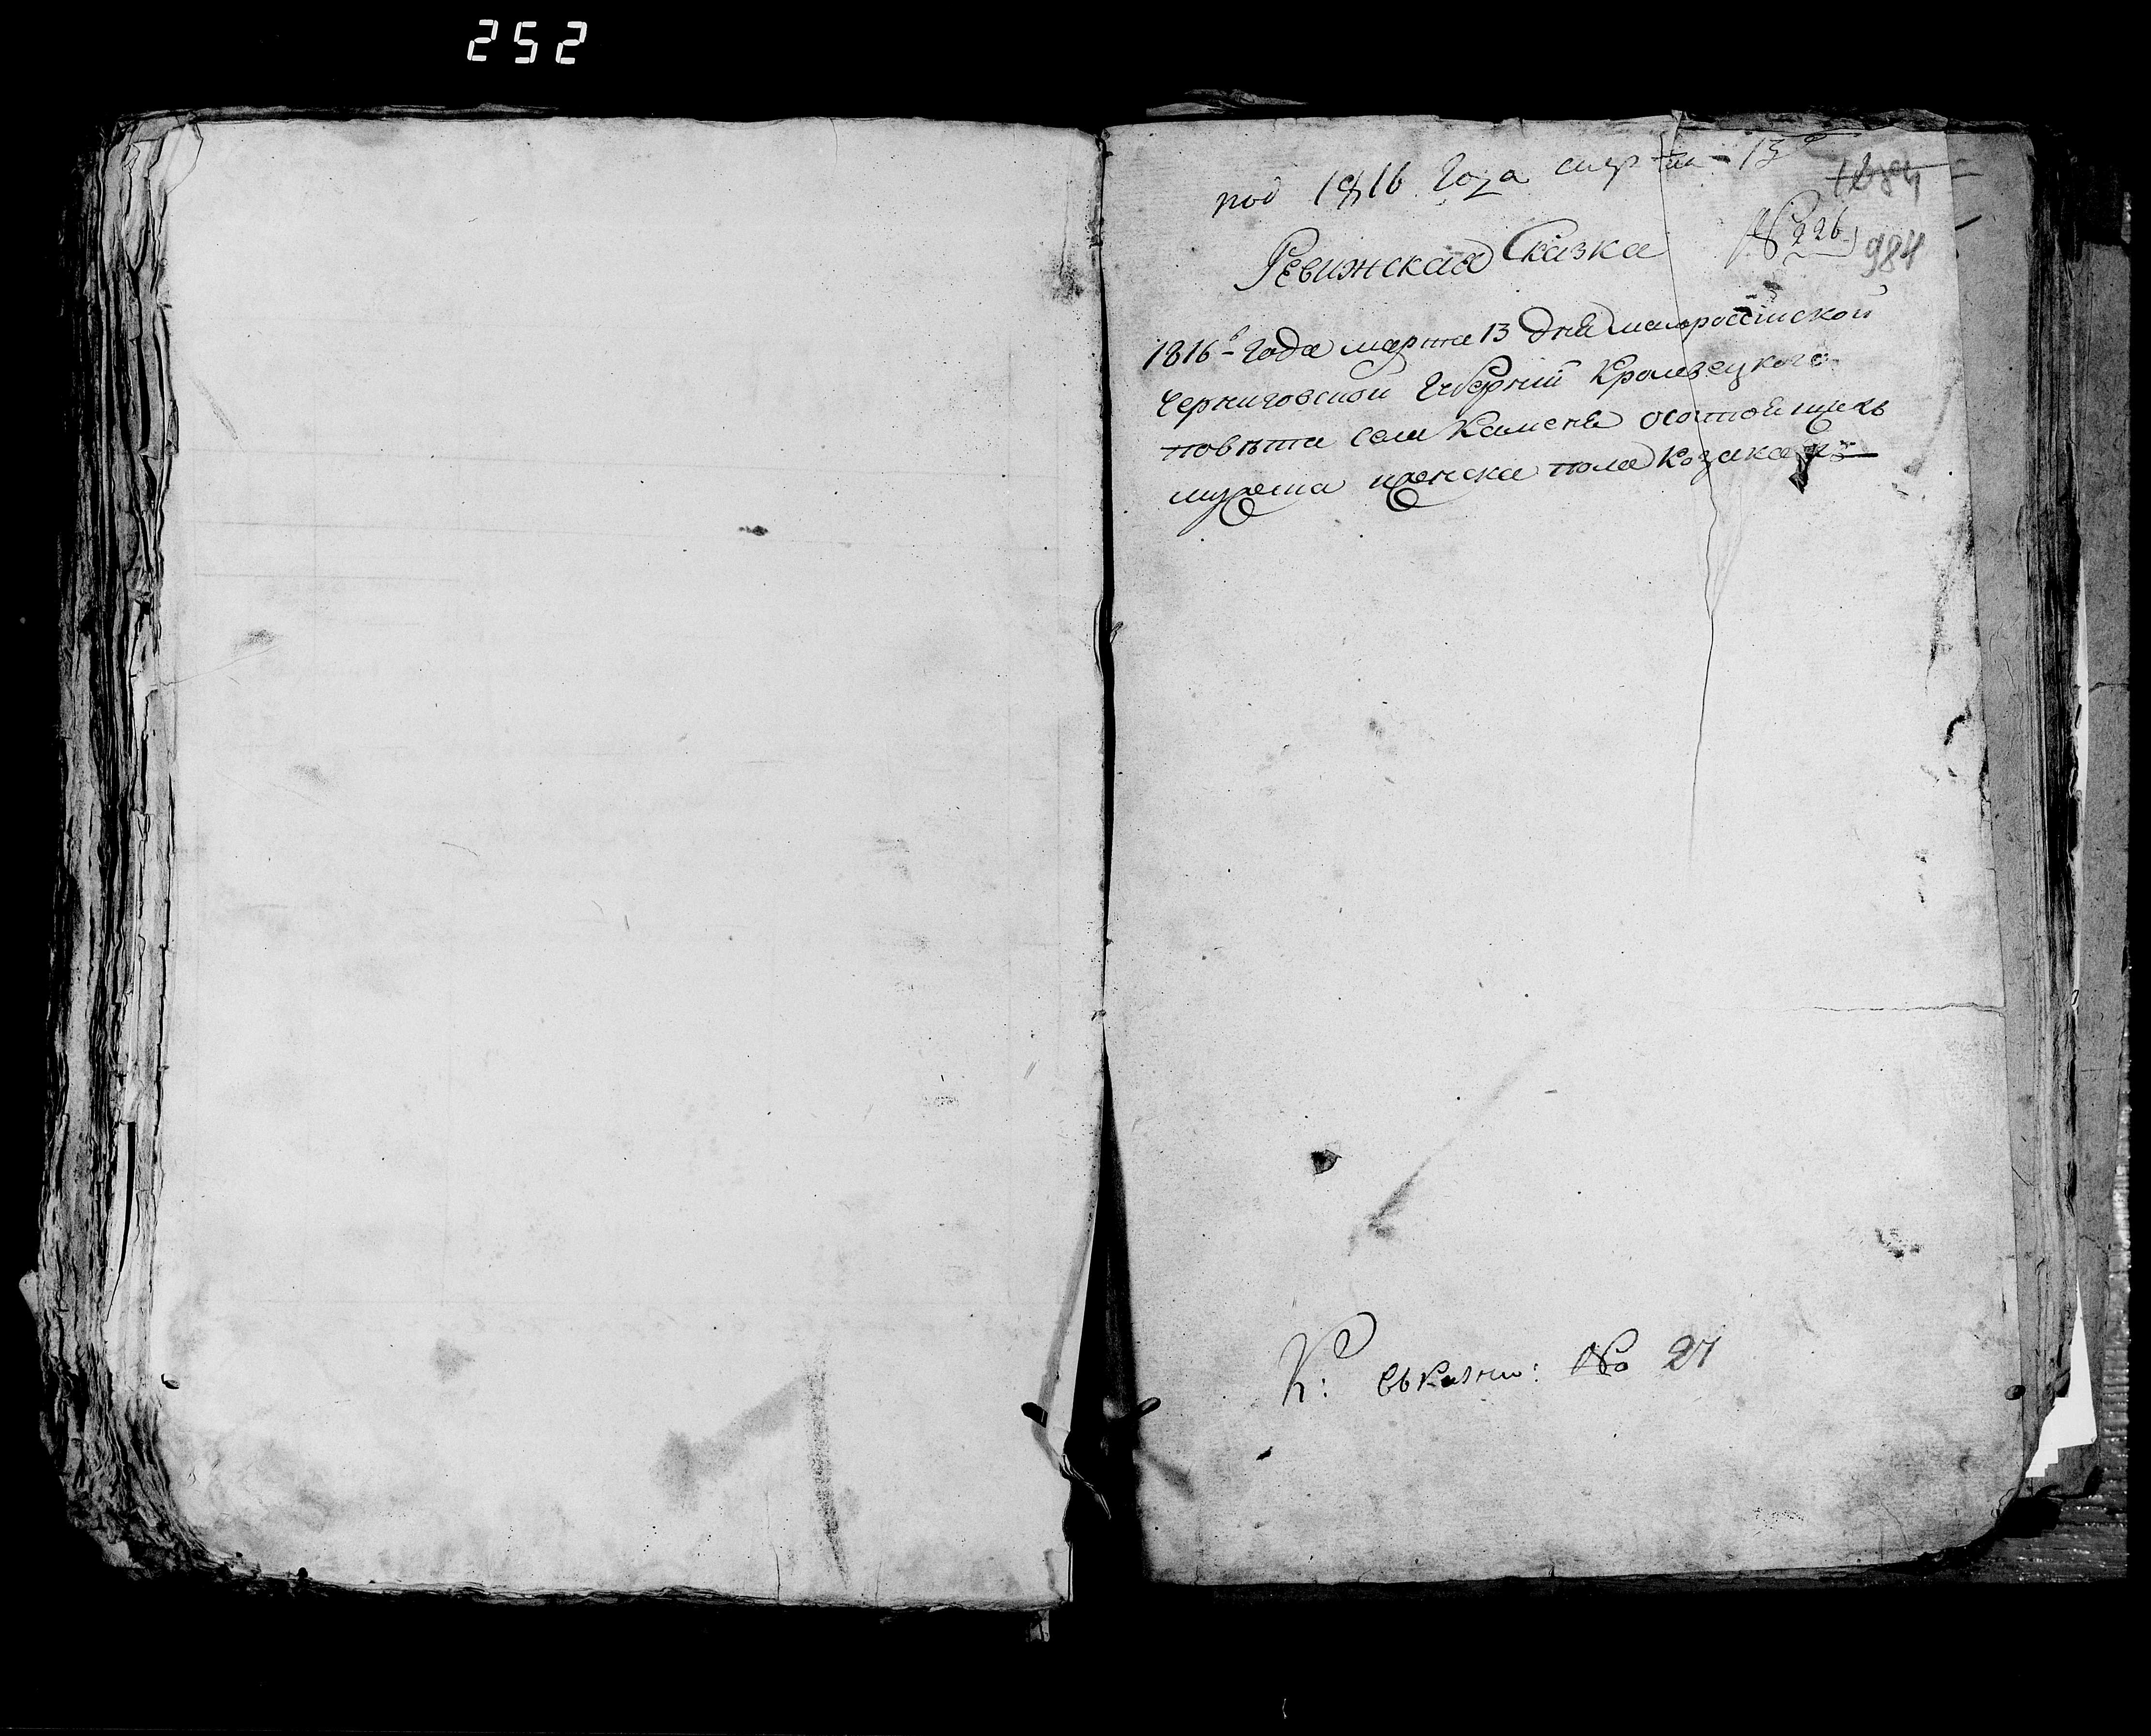 252
под 1816 года мар та 13е
1084
№ 226
984
Ревижская Сказка
1816г года марта 13 дня малороссийской
черниговской губернии Кролевецкого
повѣта села Каменя о состоящихъ
мужеска женска пола Козакахъ
К: № 27